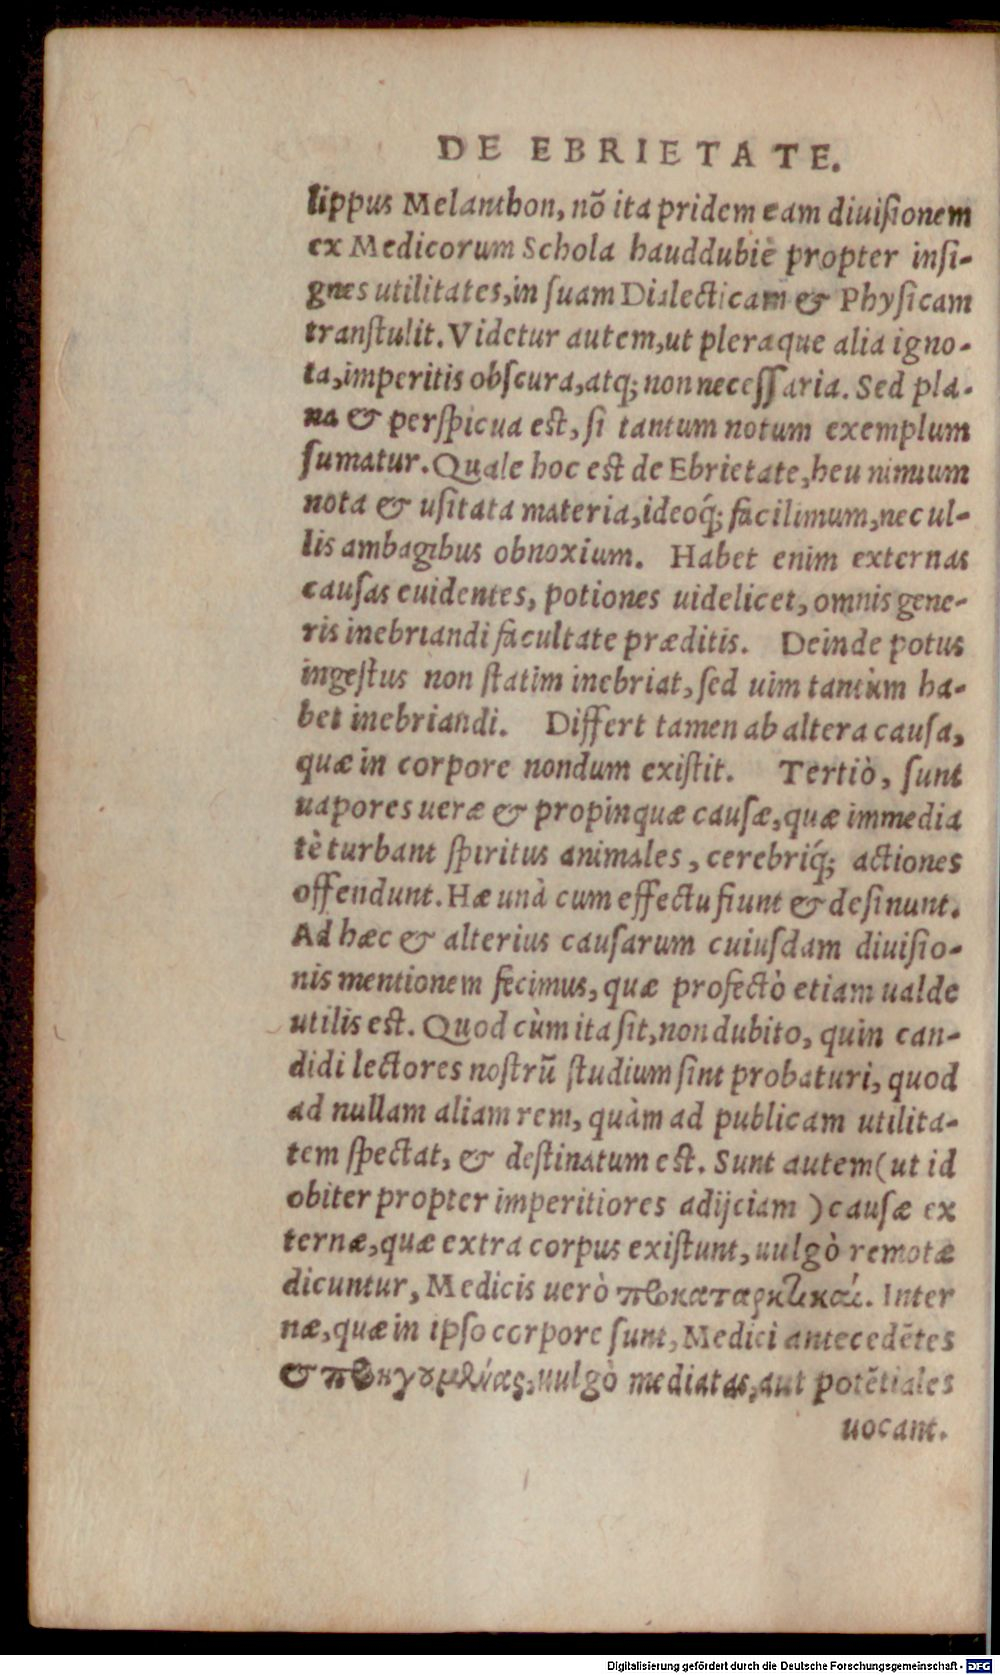 DE EBRIETATE.
lippus Melanthon, nõ ita pridem eam diuiſionem
ex Medicorum Schola hauddubiè propter inſi-
gnes utilitates, in ſuam Dialecticam & Phyſicam
tranſtulit. Videtur autem, ut pleraque alia igno-
ta, imperitis obſcura, atq; non neceſſaria. Sed pla-
na & perſpicua eſt, ſi tantum notum exemplum
ſumatur. Quale hoc eſt de Ebrietate, heu nimium
nota & uſitata materia, ideoq́; facilimum, nec ul-
lis ambagibus obnoxium. Habet enim externas
cauſas euidentes, potiones uidelicet, omnis gene-
ris inebriandi facultate præditis. Deinde potus
ingeſtus non ſtatim inebriat, ſed uim tantùm ha-
bet inebriandi. Differt tamen ab altera cauſa,
quæ in corpore nondum exiſtit. Tertiò, ſunt
uapores ueræ & propinquæ cauſæ, quæ immedia
tè turbant ſpiritus animales, cerebriq́; actiones
offendunt. Hæ unà cum effectu fiunt & deſinunt.
Ad hæc & alterius cauſarum cuiuſdam diuiſio-
nis mentionem fecimus, quæ profectò etiam ualde
utilis eſt. Quod cùm ita ſit, non dubito, quin can-
didi lectores noſtrũ ſtudium ſint probaturi, quod
ad nullam aliam rem, quàm ad publicam utilita-
tem ſpectat, & deſtinatum eſt. Sunt autem (ut id
obiter propter imperitiores adijciam) cauſæ ex
ternæ, quæ extra corpus exiſtunt, uulgò remotæ
dicuntur, Medicis uerò προκαταρκτικαί. Inter
næ, quæ in ipſo corpore ſunt, Medici antecedẽtes
& προηγουμένας, uulgò mediatas, aut potẽtiales
uocant.
Digitalisierung gefördert durch die Deutsche Forschungsgemeinschaft - DFG